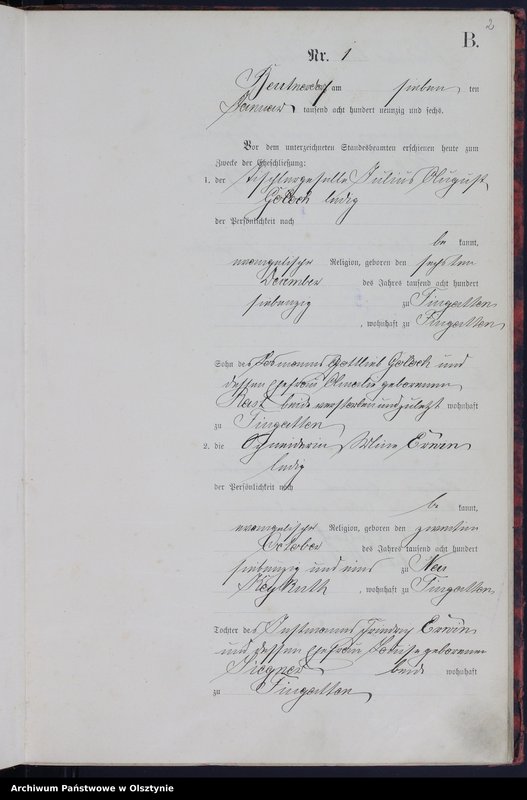 2
B.
Nr. 1
am sieben ten
Januar tausend acht hundert neunzig und sechs.
Vor dem unterzeichneten Standesbeamten erschienen heute zum
Zwecke der Eheschließung:
1. der Tischlergeselle Julius August
ledig
der Persönlichkeit nach
be kannt,
evangelischer Religion, geboren den sechsten
December des Jahres tausend acht hundert
siebenzig zu Zingatten
, wohnhaft zu Zingatten
Sohn des Gottlieb und
dessen Ehefrau Amalie geborenen
beide verstorben und zuletzt wohnhaft
zu Zingatten
2. die Schneiderin
ledig
der Persönlichkeit nach
be kannt,
evangelischer Religion, geboren den zweiten
October des Jahres tausend acht hundert
siebenzig und eins zu Neu
, wohnhaft zu Zingatten
Tochter des Instmanns
und dessen Ehefrau Louise geborenen
beide wohnhaft
zu Zingatten
Archiwum Państwowe w Olsztynie